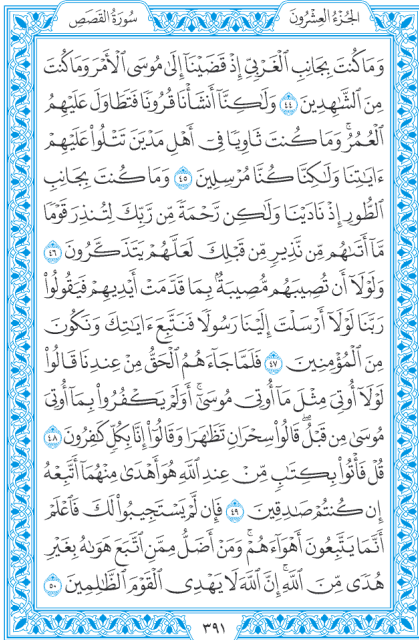 الجُزْءُ العِشْرُونَ
سُورَةُ القَصَصِ
وَمَا كُنتَ بِجَانِبِ ٱلْغَرْبِيِّ إِذْ قَضَيْنَآ إِلَىٰ مُوسَى ٱلْأَمْرَ وَمَا كُنتَ
مِنَ ٱلشَّٰهِدِينَ ٤٤ وَلَٰكِنَّآ أَنشَأْنَا قُرُونًا فَتَطَاوَلَ عَلَيْهِمُ
ٱلْعُمُرُۚ وَمَا كُنتَ ثَاوِيًا فِىٓ أَهْلِ مَدْيَنَ تَتْلُوا۟ عَلَيْهِمْ
ءَايَٰتِنَا وَلَٰكِنَّا كُنَّا مُرْسِلِينَ ٤٥ وَمَا كُنتَ بِجَانِبِ
ٱلطُّورِ إِذْ نَادَيْنَا وَلَٰكِن رَّحْمَةً مِّن رَّبِّكَ لِتُنذِرَ قَوْمًا
مَّآ أَتَىٰهُم مِّن نَّذِيرٍ مِّن قَبْلِكَ لَعَلَّهُمْ يَتَذَكَّرُونَ ٤٦
وَلَوْلَآ أَن تُصِيبَهُم مُّصِيبَةٌۢ بِمَا قَدَّمَتْ أَيْدِيهِمْ فَيَقُولُوا۟
رَبَّنَا لَوْلَآ أَرْسَلْتَ إِلَيْنَا رَسُولًا فَنَتَّبِعَ ءَايَٰتِكَ وَنَكُونَ
مِنَ ٱلْمُؤْمِنِينَ ٤٧ فَلَمَّا جَآءَهُمُ ٱلْحَقُّ مِنْ عِندِنَا قَالُوا۟
لَوْلَآ أُوتِىَ مِثْلَ مَآ أُوتِىَ مُوسَىٰٓۚ أَوَلَمْ يَكْفُرُوا۟ بِمَآ أُوتِىَ
مُوسَىٰ مِن قَبْلُۖ قَالُوا۟ سِحْرَانِ تَظَٰهَرَا وَقَالُوٓا۟ إِنَّا بِكُلٍّ كَٰفِرُونَ ٤٨
قُلْ فَأْتُوا۟ بِكِتَٰبٍ مِّنْ عِندِ ٱللَّهِ هُوَ أَهْدَىٰ مِنْهُمَآ أَتَّبِعْهُ
إِن كُنتُمْ صَٰدِقِينَ ٤٩ فَإِن لَّمْ يَسْتَجِيبُوا۟ لَكَ فَٱعْلَمْ
أَنَّمَا يَتَّبِعُونَ أَهْوَآءَهُمْۚ وَمَنْ أَضَلُّ مِمَّنِ ٱتَّبَعَ هَوَىٰهُ بِغَيْرِ
هُدًى مِّنَ ٱللَّهِۚ إِنَّ ٱللَّهَ لَا يَهْدِى ٱلْقَوْمَ ٱلظَّٰلِمِينَ ٥٠
٣٩١